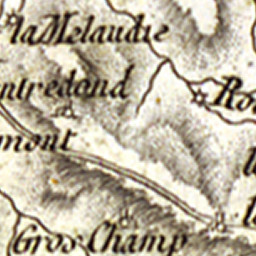 la Melaudie
ntredond
Ro
mont
Gros Champ